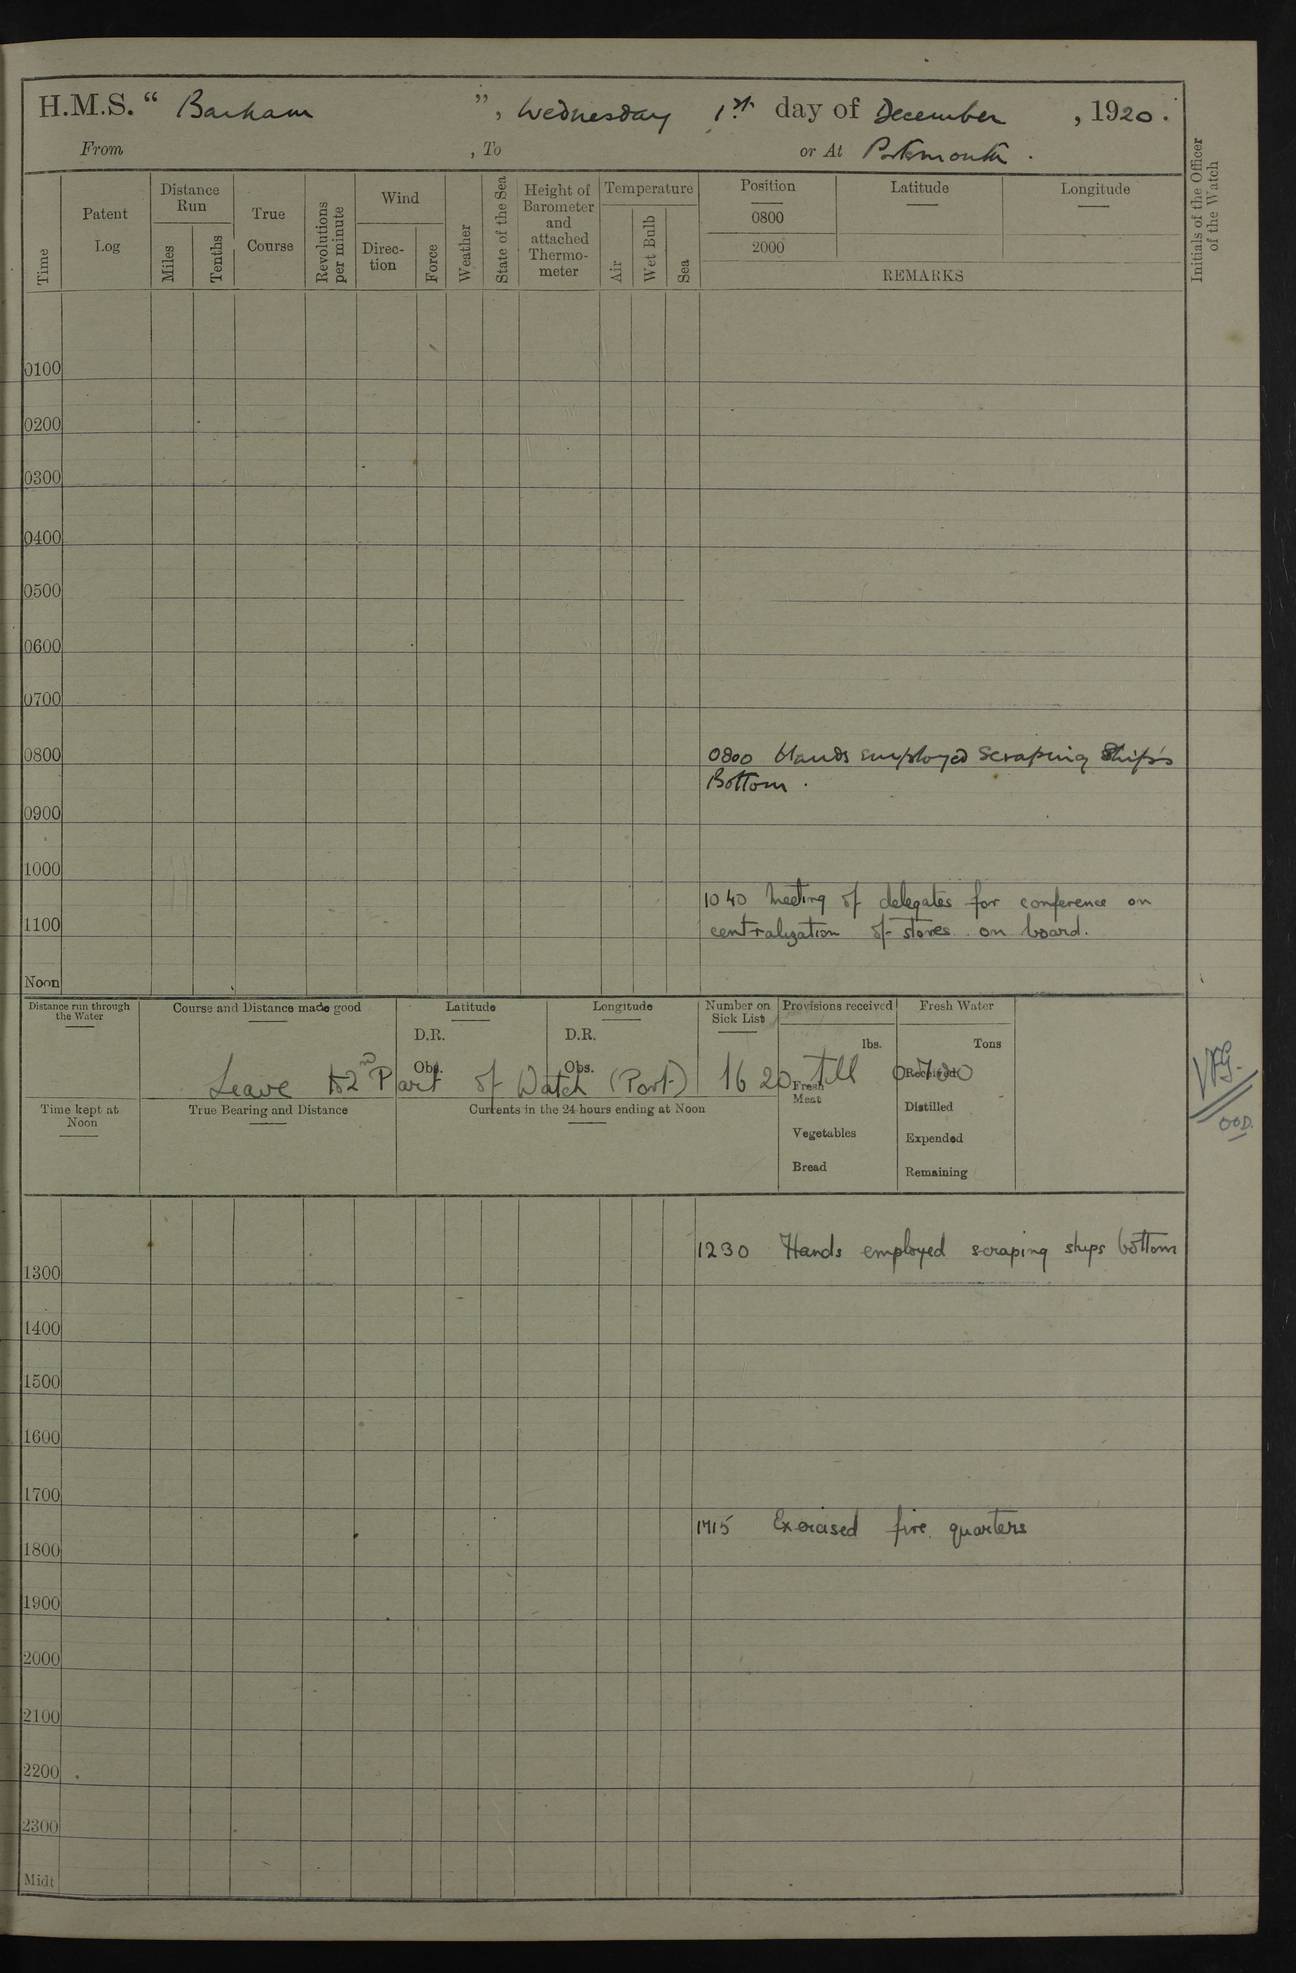 H.M.S. “ Barham ”, Wednesday 1st. day of December , 1920.
From , To or At Portsmouth .
Time
Patent Log
Distance Run
Miles
Tenths
True Course
Revolutions per minute
Wind
Direc-tion
Force
Weather
State of the Sea
Height of Barometer and attached Thermo-meter
Temperature
Air
Wet Bulb
Sea
Position Latitude Longitude
0800
2000
REMARKS
Initials of the Officer of the Watch
0100
0200
0300
0400
0500
0600
0700
0800 0800 Hands employed scraping Ship's
Bottom .
0900
1000
1040 Meeting of delegates for conference on
1100 centralization of stores on board.
Noon
Distance run through the Water
Course and Distance made good
Latitude
D.R.
Obs.
Longitude
D.R.
Obs.
Number on Sick List
Provisions received
lbs.
Fresh Meat
Vegetables
Bread
Fresh Water
Tons
Received
Distilled
Expended
Remaining
Leave to 2nd Part of Watch (Port) 1620 till 0700
Time kept at Noon
True Bearing and Distance
Currents in the 24 hours ending at Noon
OOD.
1230 Hands employed scraping ships bottom
1300
1400
1500
1600
1700
1715 Exercised fire quarters
1800
1900
2000
2100
2200
2300
Midt